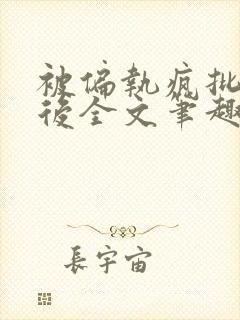 被偏執瘋批
後全文筆趣
長宇宙